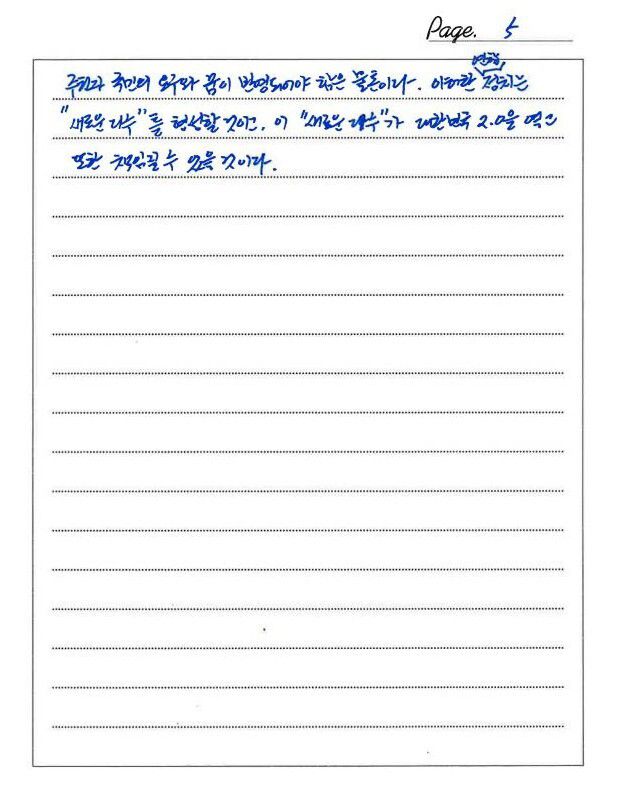 Page. 5
국민의 요구와 꿈이 반영되어야 함은 물론이다. 이러한 연합정치는
"새로운 다수"를 형성할 것이고, 이 "새로운 다수"가 대한민국 2.0을 열고
또한 책임질 수 있을 것이다.